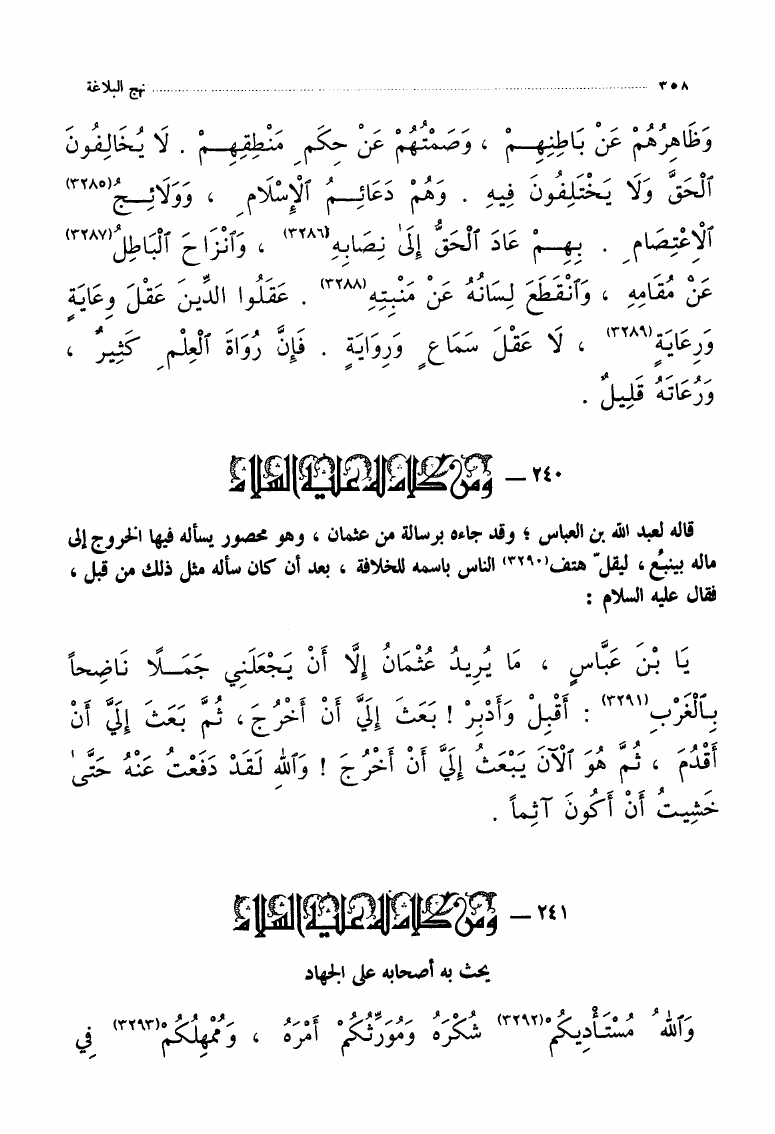 ٣٥٨ ........ نهج البلاغة
وَظَاهِرُهُمْ عَنْ بَاطِنِهِمْ ، وَصَمْتُهُمْ عَنْ حِكَمِ مَنْطِقِهِمْ . لَا يُخَالِفُونَ
ٱلْحَقَّ وَلَا يَخْتَلِفُونَ فِيهِ . وَهُمْ دَعَائِمُ ٱلْإِسْلَامِ ، وَوَلَائِجُ(٣٢٨٥)
ٱلْاِعْتِصَامِ . بِهِمْ عَادَ ٱلْحَقُّ إِلَىٰ نِصَابِهِ(٣٢٨٦) ، وَٱنْزَاحَ ٱلْبَاطِلُ(٣٢٨٧)
عَنْ مُقَامِهِ ، وَٱنْقَطَعَ لِسَانُهُ عَنْ مَنْبِتِهِ(٣٢٨٨) . عَقَلُوا الدِّينَ عَقْلَ وِعَايَةٍ
وَرِعَايَةٍ(٣٢٨٩) ، لَا عَقْلَ سَمَاعٍ وَرِوَايَةٍ . فَإِنَّ رُوَاةَ ٱلْعِلْمِ كَثِيرٌ ،
وَرُعَاتَهُ قَلِيلٌ .
٢٤٠ – ومن كلام له عليه السلام
قاله لعبد الله بن العباس ؛ وقد جاءه برسالة من عثمان ، وهو محصور يسأله فيها الخروج إلى
ماله بينبُع ، ليقلّ هتف(٣٢٩٠) الناس باسمه للخلافة ، بعد أن كان سأله مثل ذلك من قبل ،
فقال عليه السلام :
يَا بْنَ عَبَّاسٍ ، مَا يُرِيدُ عُثْمَانُ إِلَّا أَنْ يَجْعَلَنِي جَمَلًا نَاضِحاً
بِٱلْغَرْبِ(٣٢٩١) : أَقْبِلْ وَأَدْبِرْ ! بَعَثَ إِلَيَّ أَنْ أَخْرُجَ، ثُمَّ بَعَثَ إِلَيَّ أَنْ
أَقْدُمَ ، ثُمَّ هُوَ ٱلْآنَ يَبْعَثُ إِلَيَّ أَنْ أَخْرُجَ ! وَٱللهِ لَقَدْ دَفَعْتُ عَنْهُ حَتَّىٰ
خَشِيتُ أَنْ أَكُونَ آثِماً .
٢٤١ – ومن كلام له عليه السلام
يحث به أصحابه على الجهاد
وَٱللهُ مُسْتَأْدِيكُمْ(٣٢٩٢) شُكْرَهُ وَمُوَرِّثُكُمْ أَمْرَهُ ، وَمُمْهِلُكُمْ(٣٢٩٣) فِي